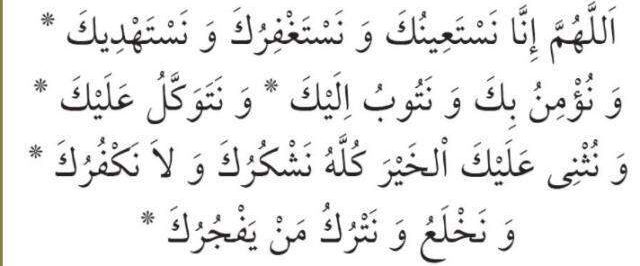 اَللّٰهُمَّ إِنَّا نَسْتَعِينُكَ وَ نَسْتَغْفِرُكَ وَ نَسْتَهْدِيكَ *
وَ نُؤْمِنُ بِكَ وَ نَتُوبُ اِلَيْكَ * وَ نَتَوَكَّلُ عَلَيْكَ *
وَ نُثْنِى عَلَيْكَ اْلخَيْرَ كُلَّهُ نَشْكُرُكَ وَ لاَ نَكْفُرُكَ *
وَ نَخْلَعُ وَ نَتْرُكُ مَنْ يَفْجُرُكَ *